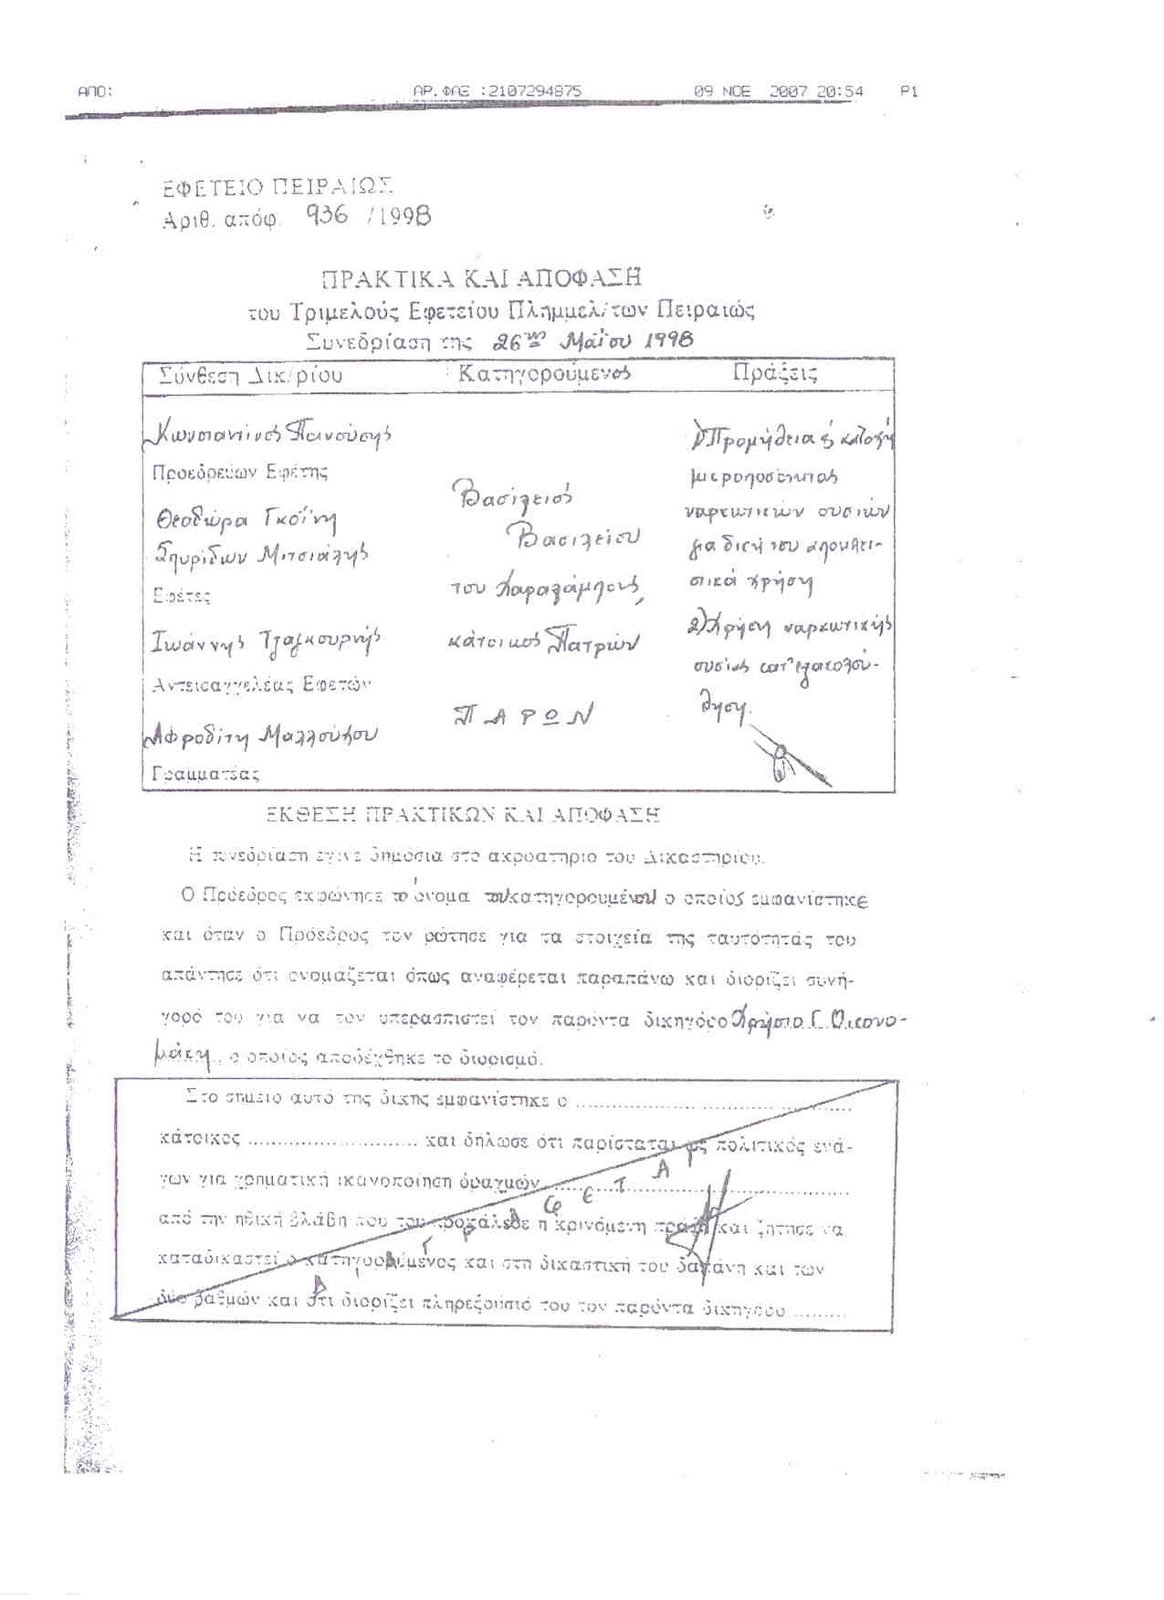 ΑΠΟ: ΑΡ.ΦΑΞ :2107294875 09 ΝΟΕ 2007 20:54 P1
ΕΦΕΤΕΙΟ ΠΕΙΡΑΙΩΣ
Αριθ. απόφ. 936 /1998
ΠΡΑΚΤΙΚΑ ΚΑΙ ΑΠΟΦΑΣΗ
του Τριμελούς Εφετείου Πλημμελ/των Πειραιώς
Συνεδρίαση της 26ης Μαΐου 1998
Σύνθεση Δικ/ρίου Κατηγορούμενος Πράξεις
Κωνσταντίνος
Προεδρεύων Εφέτης
Θεοδώρα Γκοΐνη
Σπυρίδων Μιτσιάλης
Εφέτες
Ιωάννης Τζαγκουρνής
Αντεισαγγελέας Εφετών
Αφροδίτη
Γραμματέας
Βασίλειος
Βασιλείου
του Χαραλάμπους,
κάτοικος Πατρών
ΠΑΡΩΝ
1) Προμήθεια & κατοχή
μικροποσότητας
ναρκωτικών ουσιών
για δική του αποκλει-
στικά χρήση
2) Χρήση ναρκωτικής
ουσίας κατ' εξακολού-
θηση.
ΕΚΘΕΣΗ ΠΡΑΚΤΙΚΩΝ ΚΑΙ ΑΠΟΦΑΣΗ
Η συνεδρίαση έγινε δημόσια στο ακροατήριο του Δικαστηρίου.
Ο Πρόεδρος εκφώνησε το όνομα του κατηγορουμένου ο οποίος εμφανίστηκε
και όταν ο Πρόεδρος τον ρώτησε για τα στοιχεία της ταυτότητάς του
απάντησε ότι ονομάζεται όπως αναφέρεται παραπάνω και διορίζει συνή-
γορό του για να τον υπερασπιστεί τον παρόντα δικηγόρο Χρήστο Γ. Οικονο-
μάκη, ο οποίος αποδέχθηκε το διορισμό.
Στο σημείο αυτό της δίκης εμφανίστηκε ο ..............................
κάτοικος .......................... και δήλωσε ότι παρίσταται ως πολιτικός ενά-
γων για χρηματική ικανοποίηση δραχμών ..............................
από την ηθική βλάβη που του προκάλεσε η κρινόμενη πράξη και ζήτησε να
καταδικαστεί ο κατηγορούμενος και στη δικαστική του δαπάνη και των
δύο βαθμών και ότι διορίζει πληρεξούσιό του τον παρόντα δικηγόρο .........